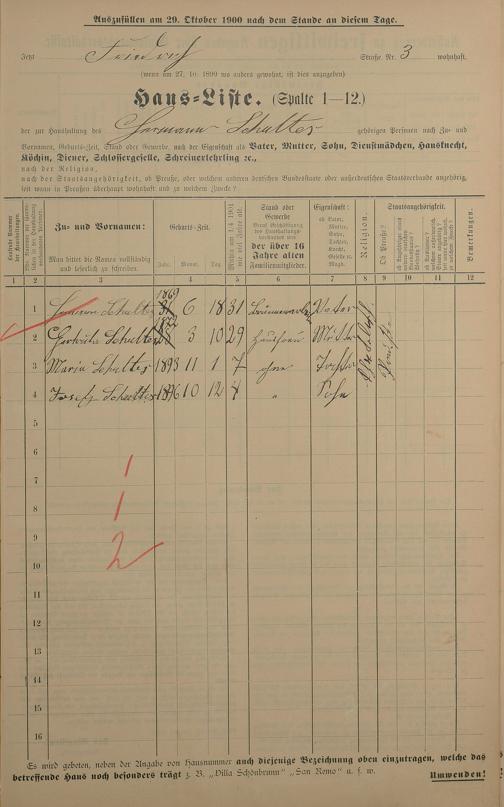 Auszufüllen am 29. Oktober 1900 nach dem Stande an diesem Tage.
Jetzt Friedrich Straße Nr. 3 wohnhaft.
(wenn am 27. 10. 1899 wo anders gewohnt, ist dies anzugeben)
Haus-Liste. (Spalte 1—12.)
der zur Haushaltung des Hermann Schulter gehörigen Personen nach Zu- und
Vornamen, Geburts-Zeit, Stand oder Gewerbe, nach der Eigenschaft als Vater, Mutter, Sohn, Dienstmädchen, Hausknecht,
Köchin, Diener, Schlossergeselle, Schreinerlehrling ꝛc.,
nach der Religion,
nach der Staatsangehörigkeit, ob Preuße, oder welchem anderen deutschen Bundesstaate oder außerdeutschen Staatsverbande angehörig,
seit wann in Preußen überhaupt wohnhaft und zu welchem Zweck?
Zu- und Vornamen:
Man bittet die Namen vollständig
und leserlich zu schreiben.
Geburts-Zeit.
Jahr. Monat. Tag.
Stand oder
Gewerbe
der über 16
Jahre alten
Familienmitglieder.
Eigenschaft:
ob Vater,
Mutter,
Sohn,
Tochter,
Knecht,
Geselle ꝛc.
Magd.
Religion.
Staatsangehörigkeit.
Ob Preuße?
Bemerkungen.
1 2 3 4 5 6 7 8 9 10 11 12
1 Hermann Schulter 1869 6 18 31 Vater
2 Gertrude Schulter 3 10 29 Hausfrau Mutter
3 Maria Schulter 1893 11 1 7 ohne Tochter
4 Josef Schulter 1896 10 12 4 " Sohn
5
6
7
8
9
10
11
12
13
14
15
16
1
1
2
Es wird gebeten, neben der Angabe von Hausnummer auch diejenige Bezeichnung oben einzutragen, welche das
betreffende Haus noch besonders trägt z. B. „Villa Schönbrunn“ „San Remo“ u. s. w.
Umwenden!